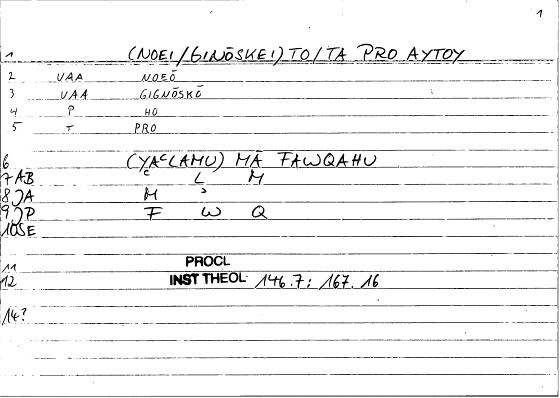 1
1 (NOEI/GINŌSKEI) TO/TA PRO AYTOY
2 VAA NOEŌ
3 VAA GIGNŌSKŌ
4 P HO
5 T PRO
6 (YAʿLAMU) MĀ FAWQAHU
7 AB ʿ L M
8 JA M ʾ
9 JP F W Q
10 SE
11 PROCL
12 INST THEOL 146.7; 167.16
14?